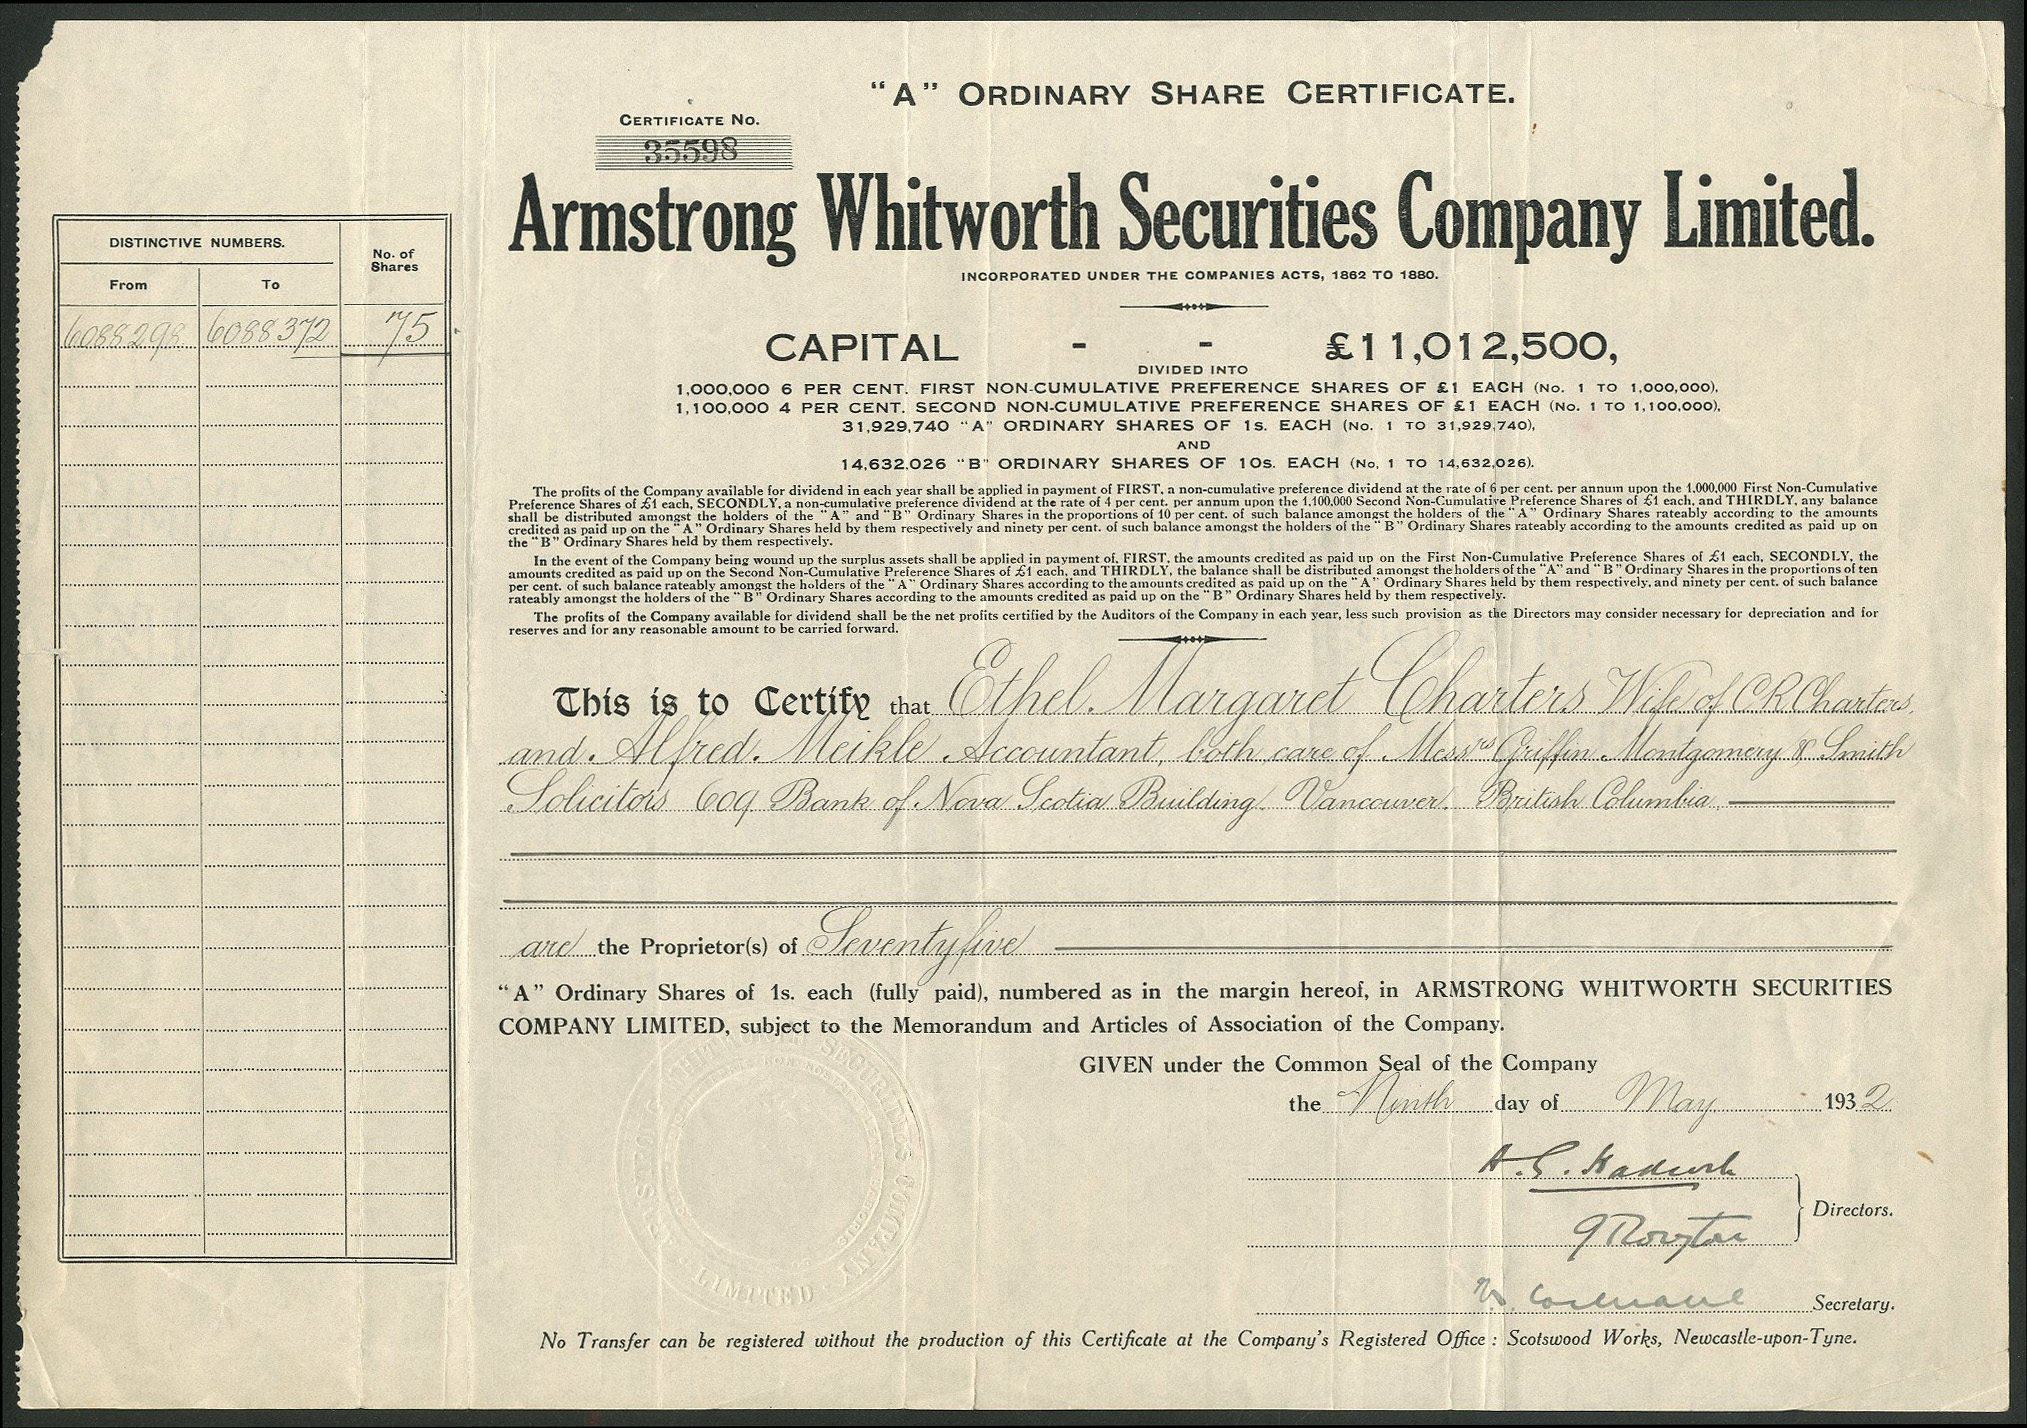 "A" ORDINARY SHARE CERTIFICATE.
CERTIFICATE No.
35598
Armstrong Whitworth Securities Company Limited.
INCORPORATED UNDER THE COMPANIES ACTS, 1862 TO 1880.
DISTINCTIVE NUMBERS.
No. of
Shares
From To
6088298 6088372 75
CAPITAL - - £11,012,500,
DIVIDED INTO
1,000,000 6 PER CENT. FIRST NON-CUMULATIVE PREFERENCE SHARES OF £1 EACH (No. 1 TO 1,000,000),
1,100,000 4 PER CENT. SECOND NON-CUMULATIVE PREFERENCE SHARES OF £1 EACH (No. 1 TO 1,100,000),
31,929,740 "A" ORDINARY SHARES OF 1s. EACH (No. 1 TO 31,929,740),
AND
14,632,026 "B" ORDINARY SHARES OF 10s. EACH (No. 1 TO 14,632,026).
The profits of the Company available for dividend in each year shall be applied in payment of FIRST, a non-cumulative preference dividend at the rate of 6 per cent. per annum upon the 1,000,000 First Non-Cumulative
Preference Shares of £1 each, SECONDLY, a non-cumulative preference dividend at the rate of 4 per cent. per annum upon the 1,100,000 Second Non-Cumulative Preference Shares of £1 each, and THIRDLY, any balance
shall be distributed amongst the holders of the "A" and "B" Ordinary Shares in the proportions of 10 per cent. of such balance amongst the holders of the "A" Ordinary Shares rateably according to the amounts
credited as paid up on the "A" Ordinary Shares held by them respectively and ninety per cent. of such balance amongst the holders of the "B" Ordinary Shares rateably according to the amounts credited as paid up on
the "B" Ordinary Shares held by them respectively.
In the event of the Company being wound up the surplus assets shall be applied in payment of, FIRST, the amounts credited as paid up on the First Non-Cumulative Preference Shares of £1 each, SECONDLY, the
amounts credited as paid up on the Second Non-Cumulative Preference Shares of £1 each, and THIRDLY, the balance shall be distributed amongst the holders of the "A" and "B" Ordinary Shares in the proportions of ten
per cent. of such balance rateably amongst the holders of the "A" Ordinary Shares according to the amounts credited as paid up on the "A" Ordinary Shares held by them respectively, and ninety per cent. of such balance
rateably amongst the holders of the "B" Ordinary Shares according to the amounts credited as paid up on the "B" Ordinary Shares held by them respectively.
The profits of the Company available for dividend shall be the net profits certified by the Auditors of the Company in each year, less such provision as the Directors may consider necessary for depreciation and for
reserves and for any reasonable amount to be carried forward.
This is to Certify that Ethel Margaret Charters Wife of C R Charters,
and Alfred Meikle Accountant, both care of Messrs Griffin Montgomery & Smith
Solicitors 609 Bank of Nova Scotia Building. Vancouver. British Columbia
are the Proprietor(s) of Seventyfive
"A" Ordinary Shares of 1s. each (fully paid), numbered as in the margin hereof, in ARMSTRONG WHITWORTH SECURITIES
COMPANY LIMITED, subject to the Memorandum and Articles of Association of the Company.
GIVEN under the Common Seal of the Company
the Ninth day of May 1932
Directors.
Secretary.
ARMSTRONG WHITWORTH SECURITIES COMPANY LIMITED
No Transfer can be registered without the production of this Certificate at the Company's Registered Office : Scotswood Works, Newcastle-upon-Tyne.